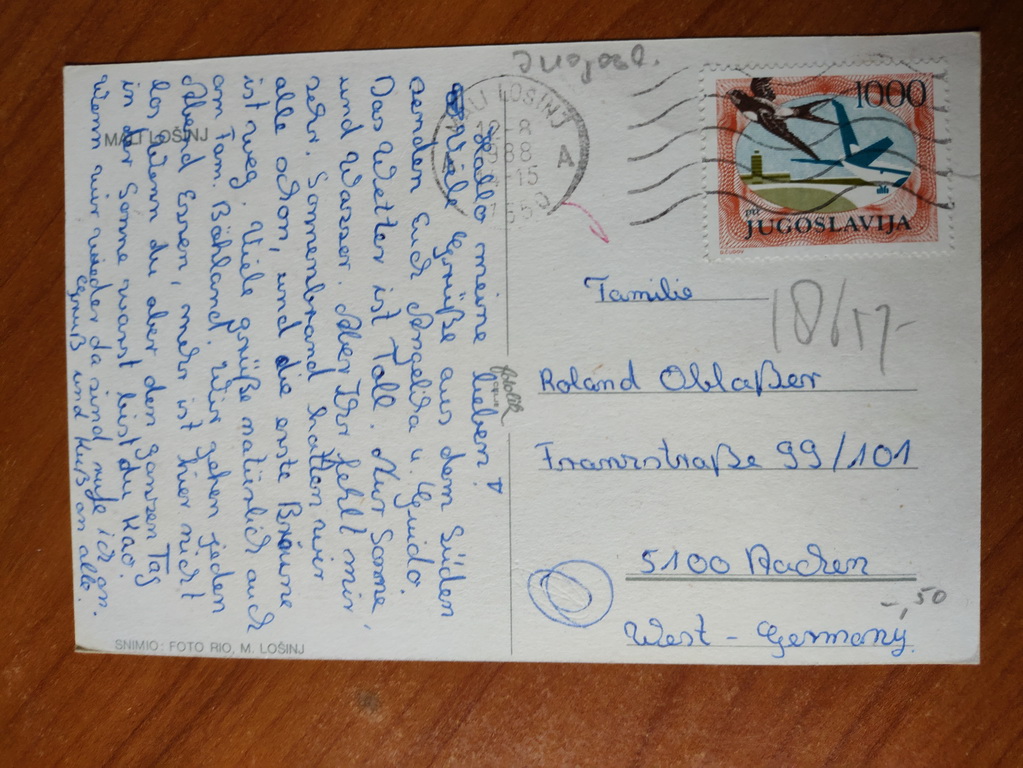 Hallo meine lieben!
Viele Grüße aus dem Süden
senden Euch Angelika u. Guido.
Das Wetter ist Toll. Nur Sonne,
und Wasser. Aber Ihr fehlt mir
sehr. Sonnenbrand hatten wir
alle schon, und die erste Bräune
ist weg. Viele grüße natürlich auch
an Fam. Böhland. Wir gehen jeden
Abend Essen, mehr ist hier nicht
los. Wenn du aber den ganzen Tag
in der Sonne warst bist du Kao.
Wenn wir wieder da sind rufe ich an.
Gruß und Kuß an alle.
MALI LOŠINJ
SNIMIO: FOTO RIO, M. LOŠINJ
Jugosl.
MALI LOŠINJ
12-8
1988
15
A
A
1000
ptt
JUGOSLAVIJA
Familie
Roland Oblaßer
Franzstraße 99/101
5100 Aachen
West - Germany
-,50